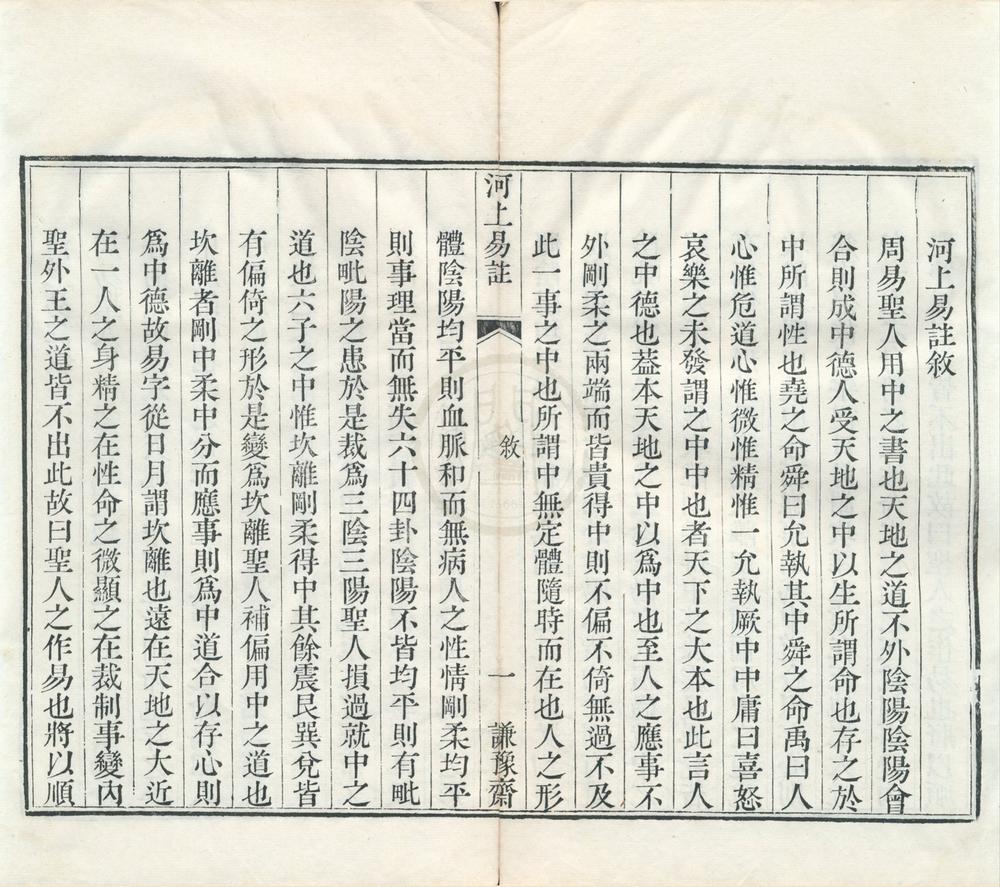 河上易註敘
周易聖人用中之書也天地之道不外陰陽陰陽會
合則成中德人受天地之中以生所謂命也存之於
中所謂性也堯之命舜曰允執其中舜之命禹曰人
心惟危道心惟微惟精惟一允執厥中中庸曰喜怒
哀樂之未發謂之中中也者天下之大本也此言人
之中德也葢本天地之中以為中也至人之應事不
外剛柔之兩端而皆貴得中則不偏不倚無過不及
此一事之中也所謂中無定體隨時而在也人之形
河上易註
敘
一
謙豫齋
體陰陽均平則血脈和而無病人之性情剛柔均平
則事理當而無失六十四卦陰陽不皆均平則有毗
陰毗陽之患於是裁爲三陰三陽聖人損過就中之
道也六子之中惟坎離剛柔得中其餘震艮巽兌皆
有偏倚之形於是變爲坎離聖人補偏用中之道也
坎離者剛中柔中分而應事則爲中道合以存心則
爲中德故易字從日月謂坎離也遠在天地之大近
在一人之身精之在性命之微顯之在裁制事變內
聖外王之道皆不出此故曰聖人之作易也將以順